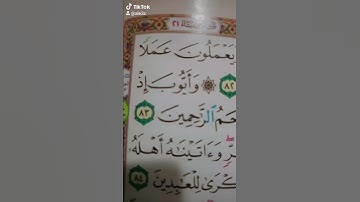 TikTok
٢١
يَعْمَلُونَ عَمَلًا
٨٢ وَأَيُّوبَ إِذْ
ٱلرَّٰحِمِينَ ٨٣
وَءَاتَيْنَٰهُ أَهْلَهُۥ
لِلْعَٰبِدِينَ ٨٤